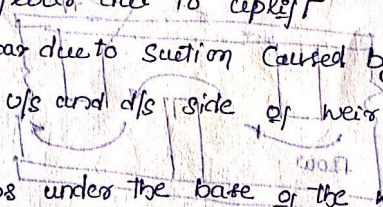 to uplift
due to suction caused b
u/s and d/s side of weir
s under the base of the